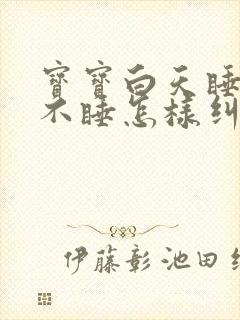 寶寶白天睡
不睡怎樣糾
伊藤彰池田紅